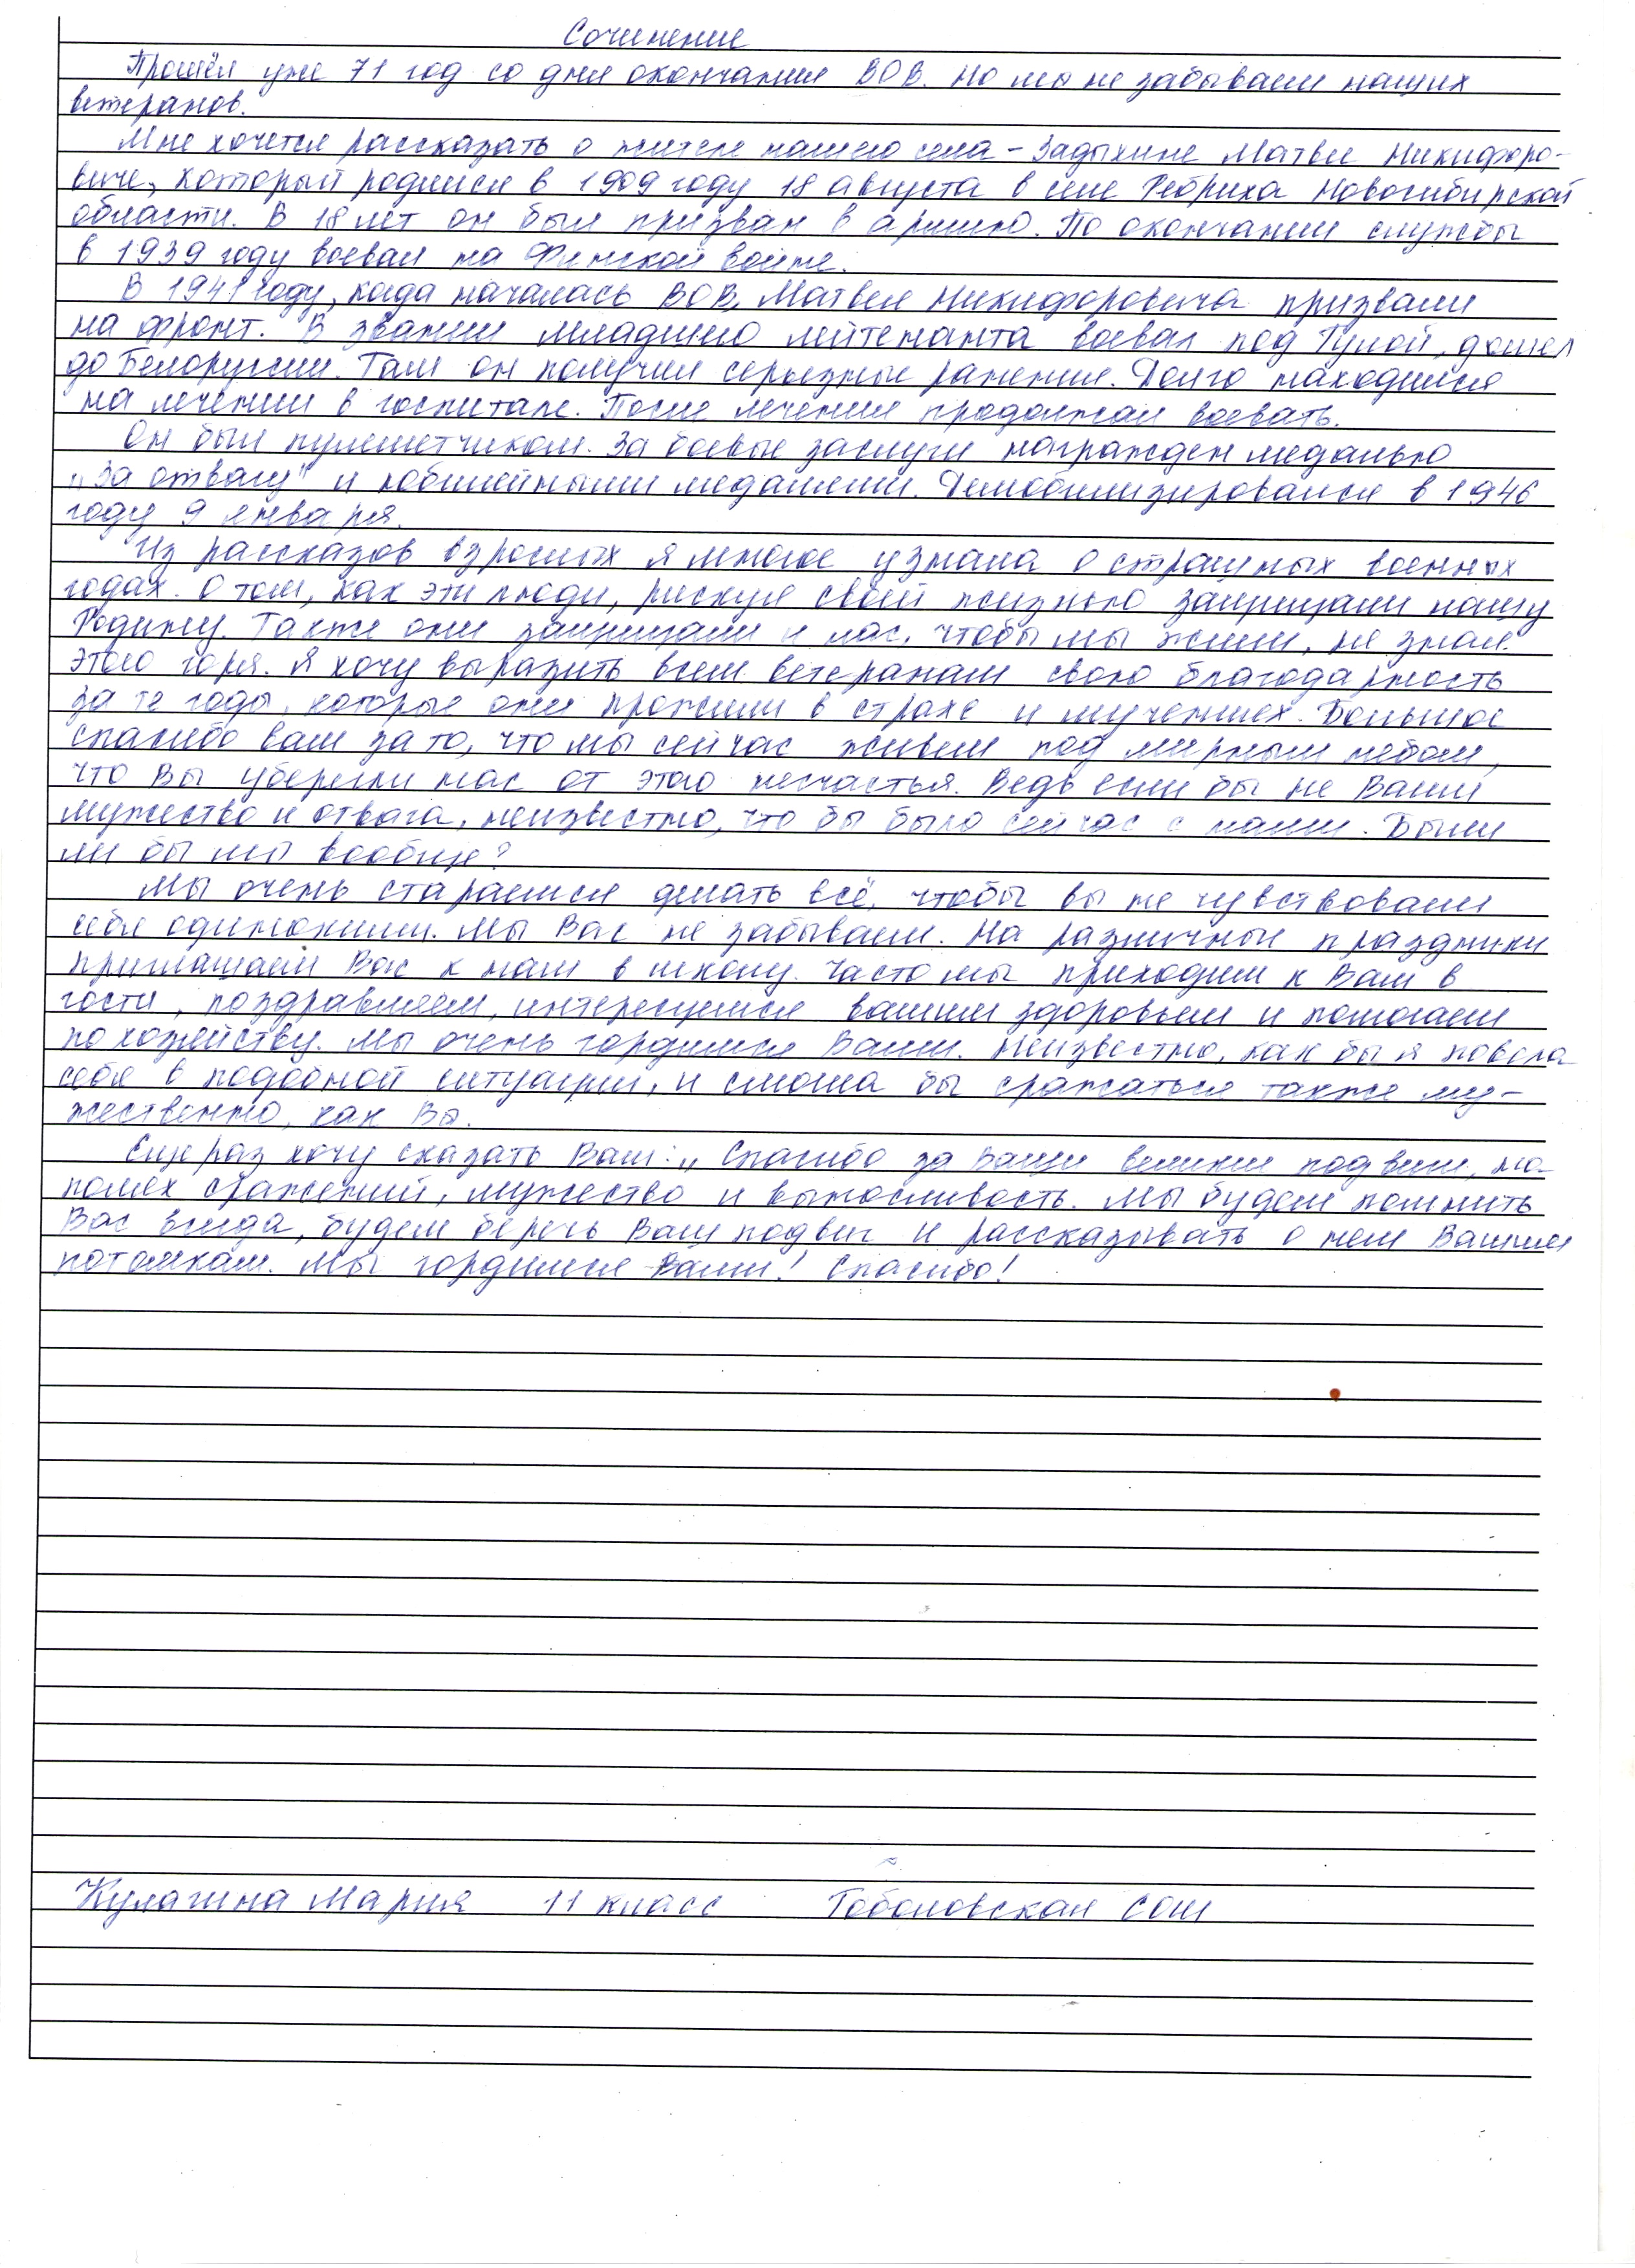 Сочинение
Прошёл уже 71 год со дня окончания ВОВ. Но мы не забываем наших
ветеранов.
Мне хочется рассказать о жителе нашего села - Задыхине Матвее Никифоро-
виче, который родился в 1909 году 18 августа в селе Ребриха Новосибирской
области. В 18 лет он был призван в армию. По окончании службы
в 1939 году воевал на Финской войне.
В 1941 году, когда началась ВОВ, Матвея Никифоровича призвали
на фронт. В звании младшего лейтенанта воевал под Тулой, дошел
до Белоруссии. Там он получил серьезные ранения. Долго находился
на лечении в госпитале. После лечения продолжал воевать.
Он был пулеметчиком. За боевые заслуги награжден медалью
„За отвагу" и юбилейными медалями. Демобилизировался в 1946
году 9 января.
Из рассказов взрослых я многое узнала о страшных военных
годах. О том, как эти люди, рискуя своей жизнью защищали нашу
Родину. Также они защищали и нас, чтобы мы жили, не зная
этого горя. Я хочу выразить всем ветеранам свою благодарность
за те годы, которые они прожили в страхе и мучениях. Большое
спасибо вам за то, что мы сейчас живем под мирным небом,
что Вы уберегли нас от этого несчастья. Ведь если бы не Ваши
мужество и отвага, неизвестно, что бы было сейчас с нами. Были
ли бы мы вообще?
Мы очень стараемся делать всё, чтобы вы не чувствовали
себя одинокими. Мы Вас не забываем. На различные праздники
приглашаем Вас к нам в школу. Часто мы приходим к Вам в
гости, поздравляем, интересуемся вашим здоровьем и помогаем
по хозяйству. Мы очень гордимся Вами. Неизвестно, как бы я повела
себя в подобной ситуации, и смогла бы сражаться также му-
жественно, как Вы.
Еще раз хочу сказать Вам: „Спасибо за Ваши великие подвиги, на
полях сражений, мужество и выносливость. Мы будем помнить
Вас всегда, будем беречь Ваш подвиг и рассказывать о нем Вашим
потомкам. Мы гордимся Вами! Спасибо!
Кулагина Мария 11 класс Тоболовская СОШ